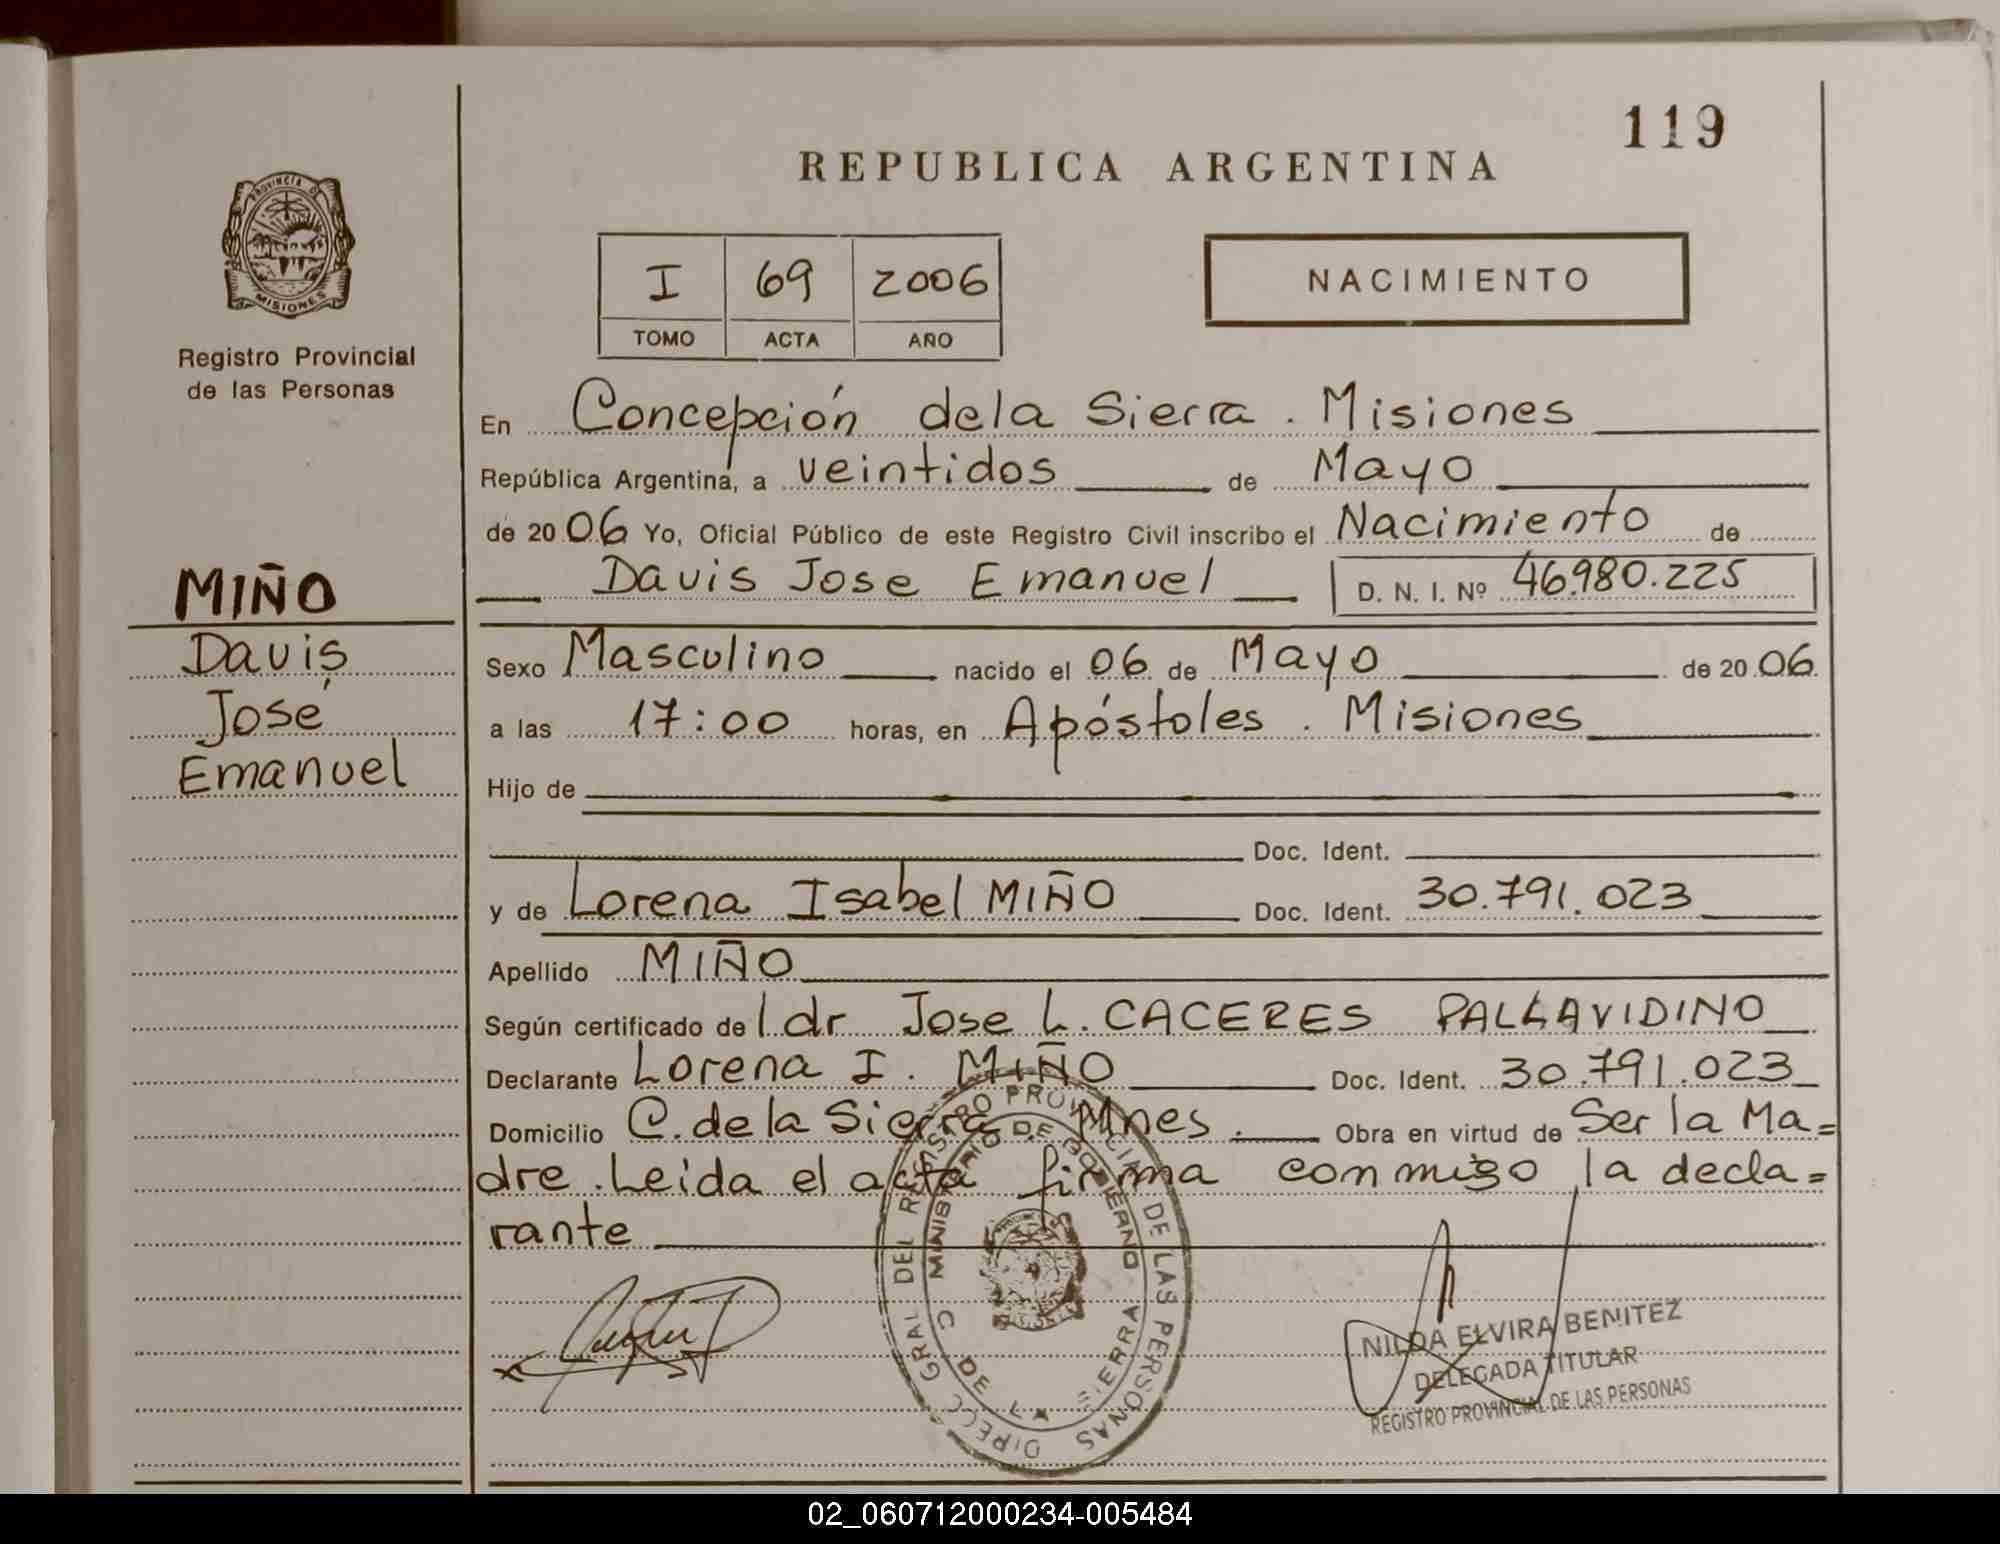 119
REPUBLICA ARGENTINA
PROVINCIA D
MISIONES
I 69 2006
TOMO ACTA AÑO
NACIMIENTO
Registro Provincial
de las Personas
En Concepción dela Sierra . Misiones
República Argentina, a veintidos de Mayo
de 20 06 Yo, Oficial Público de este Registro Civil inscribo el Nacimiento de
Davis Jose Emanuel D. N. I. Nº 46.980.225
MIÑO
Davis
José
Emanuel
Sexo Masculino nacido el 06 de Mayo de 20 06
a las 17:00 horas, en Apóstoles . Misiones
Hijo de
Doc. Ident.
y de Lorena Isabel MIÑO Doc. Ident. 30.791.023
Apellido MIÑO
Según certificado de l dr Jose L. CACERES PALLAVIDINO
Declarante Lorena I. MIÑO Doc. Ident. 30.791.023
Domicilio C. de la Sierra Mnes. Obra en virtud de Ser la Ma=
dre . Leida el acta firma conmigo la decla=
rante
DIRECC GRAL DEL REGISTRO PROVINCIAL DE LAS PERSONAS
MINISTERIO DE GOBIERNO
C DE LA SIERRA
NILDA ELVIRA BENITEZ
DELEGADA TITULAR
REGISTRO PROVINCIAL DE LAS PERSONAS
02_060712000234-005484